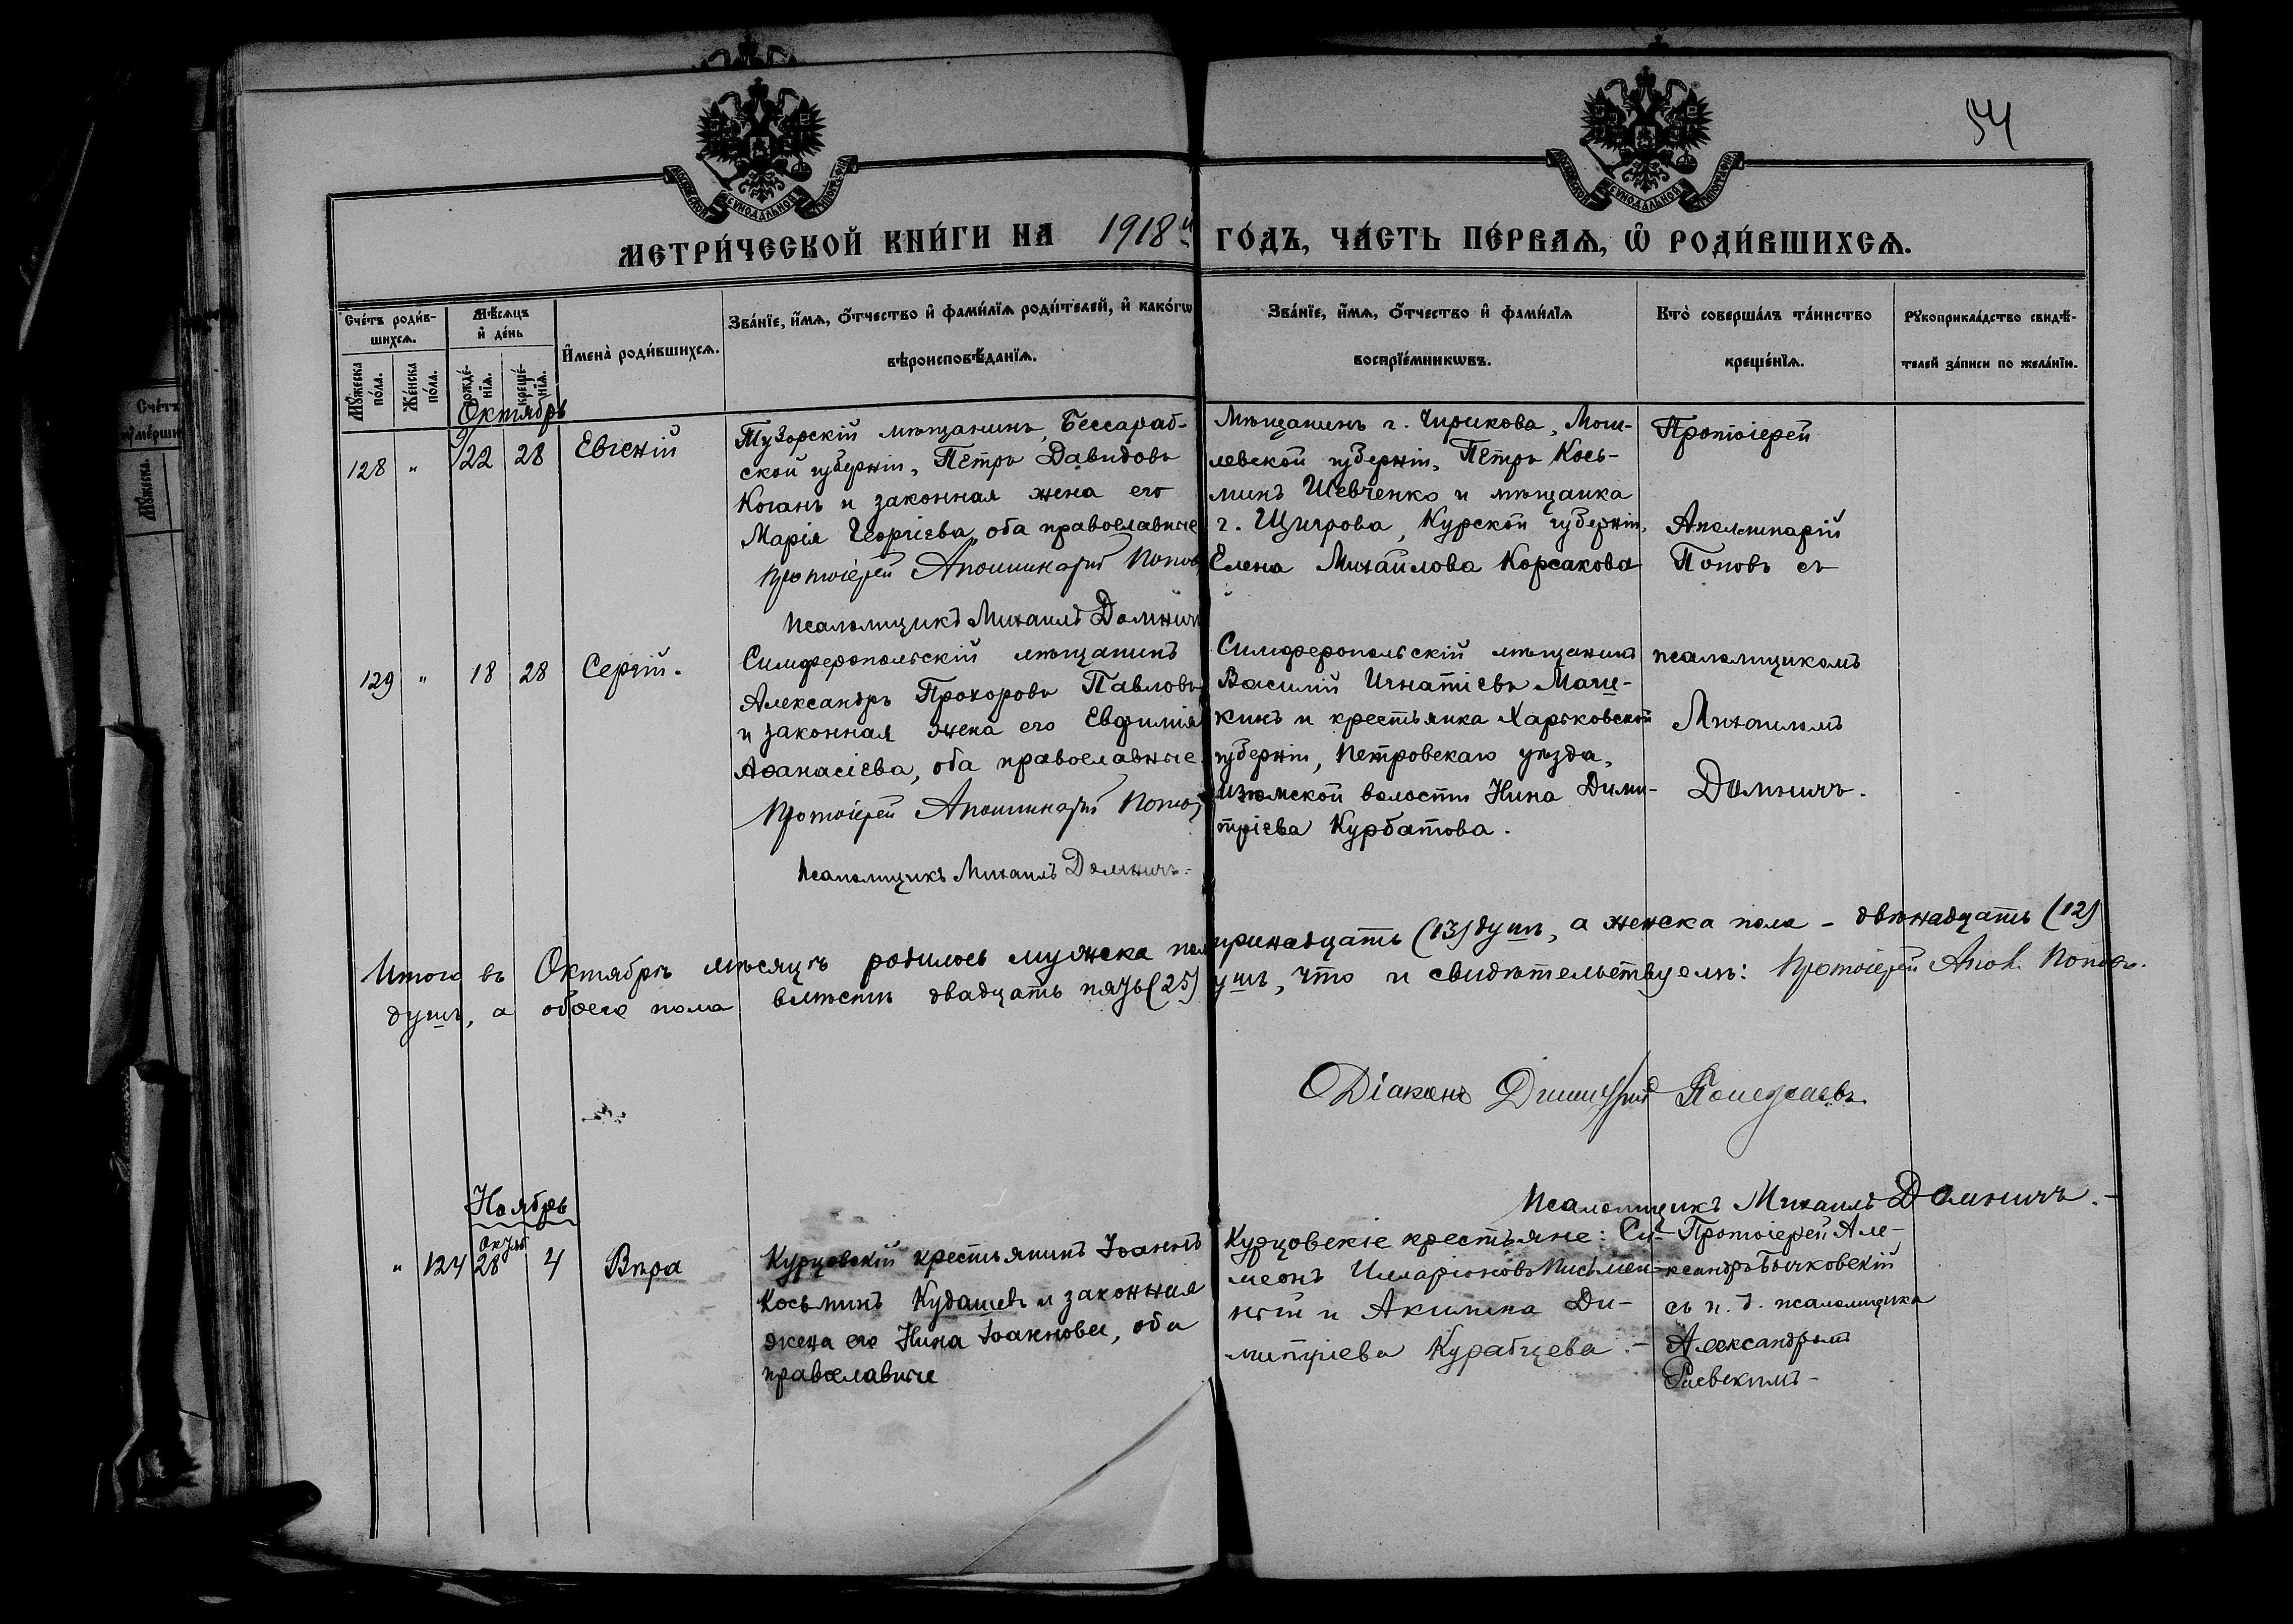 54
МЕТРИ́ЧЕСКОЙ КНИ́ГИ НА 1918й ГО́ДЪ, ЧА́СТЬ ПЕ́РВАѦ, Ѽ РОДИ́ВШИХСѦ.
Сче́тъ роди́в-
шихсѧ.
Мꙋ́жеска по́ла.
Же́нска по́ла.
Мѣ́сѧцъ
и҆ де́нь
рожде́-
нїѧ.
креще́-
нїѧ.
И҆мена̀ роди́вшихсѧ.
Зва́нїе, и҆́мѧ, ѻ҆́тчество и҆ фами́лїѧ роди́телей, и҆ како́гѡ
вѣроисповѣ́данїѧ.
Зва́нїе, и҆́мѧ, ѻ҆́тчество и҆ фами́лїѧ
воспрїе́мникѡвъ.
Кто̀ соверша́лъ та́инство
креще́нїѧ.
Рꙋкоприкла́дство свидѣ́-
телей за́писи по жела́нїю.
Октябрь
128 " 9/22 28 Евгеній
Тузорскій мѣщанинъ, Бессараб-
ской губерніи, Петръ Давидовъ
Коганъ и законная жена его
Марія Георгіева, оба православные
Протоіерей Аполлинарій Поповъ
Псаломщикъ Михаилъ Домнич
Мѣщанинъ г. Чирикова, Моги-
левской губерніи, Петръ Кось-
минъ Шевченко и мѣщанка
г. Щигрова, Курской губерніи,
Елена Михайлова Корсакова
Протоіерей
Аполлинарій
Поповъ съ
129 " 18 28 Сергій.
Симферопольскій мѣщанинъ
Александръ Прохоровъ Павловъ
и законная жена его Евфимія
Афанасіева, оба православные
Протоіерей Аполлинарій Попов
Псаломщикъ Михаилъ Домничъ.
Симферопольскій мѣщанинъ
Василій Игнатіевъ Маши-
кинъ и крестьянка Харьковской
губерніи, Петровскаго уѣзда,
Изюмской волости Нина Дими-
тріева Курбатова.
псаломщикомъ
Михаиломъ
Домничъ.
Итого въ Октябрѣ мѣсяцѣ родилось мужска пола тринадцать (13) душъ, а женска пола - двѣнадцать (12)
душъ, а обоего пола вмѣстѣ двадцать пять (25) душъ, что и свидѣтельствуемъ: Протоіерей Апол. Поповъ.
Діаконъ Димитрій
Псаломщикъ Михаилъ Домничъ.-
Ноябрь
" 124 Октяб 28 4 Вѣра
Курцовскій крестьянинъ Іоаннъ
Косьминъ Кудашевъ и законная
жена его Нина Іоаннова, оба
православные
Курцовскіе крестьяне: Си-
меонъ Илларіоновъ Письмен-
ный и Акилина Ди-
митріева Курабцева.-
Протоіерей Але-
ксандръ Бычковскій
съ и. д. псаломщика
Александромъ
Раевскимъ-